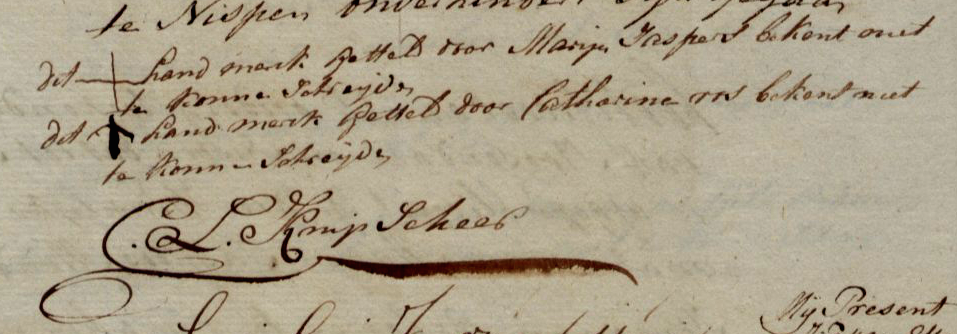 te Nispen
dit hand merk gettelt door Marijn Jaspers bekent niet
te konne schreijde
dit hand merk gettelt door Catharine vos bekent niet
te konne schreijde
C. L. Knip Scheer
Mij Present